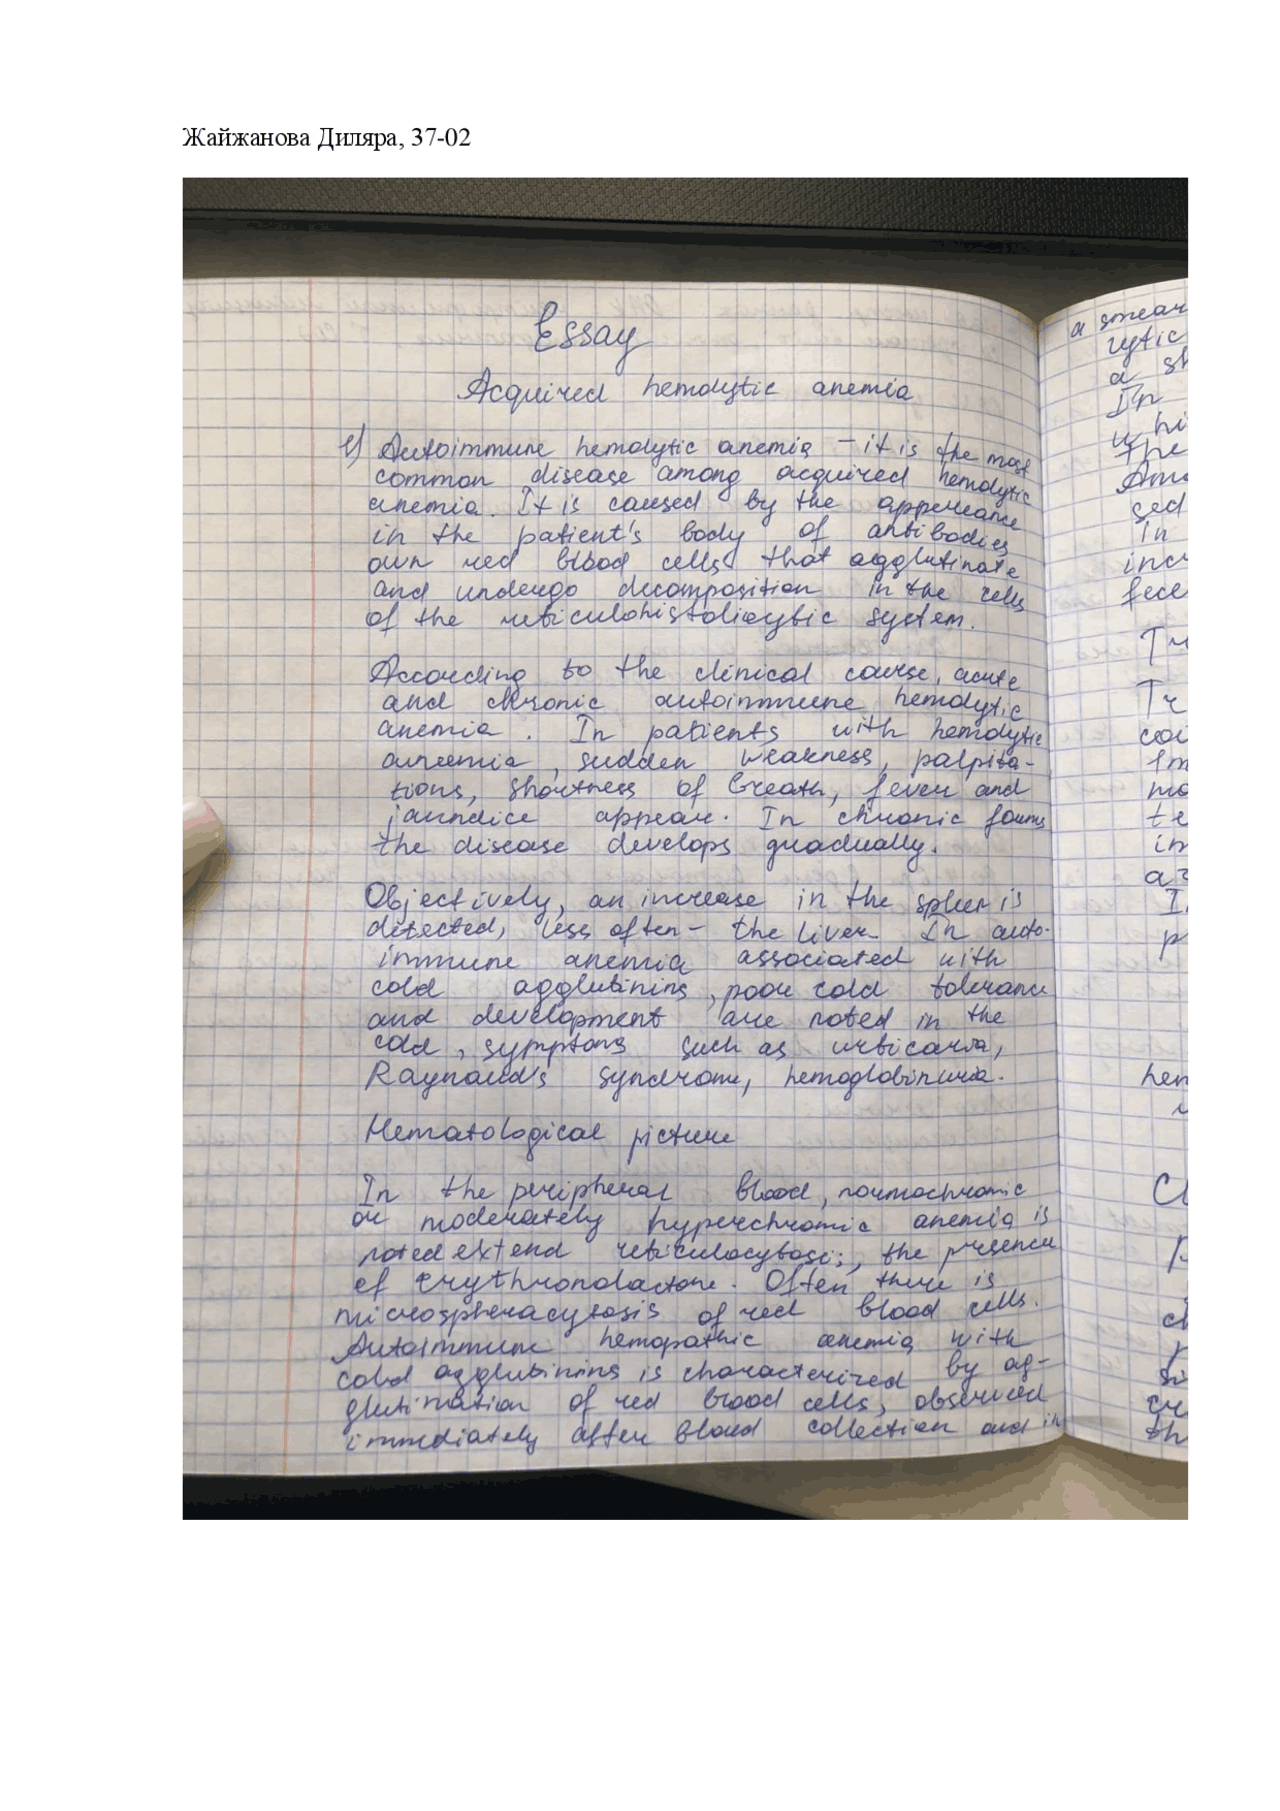 Жайжанова Диляра, 37-02
Essay
Acquired hemolytic anemia
1) Autoimmune hemolytic anemia - it is the most
common disease among acquired hemolytic
anemia. It is caused by the appereance
in the patient's body of antibodies
own red blood cells that agglutinate
and undergo decomposition in the cells
of the system.
According to the clinical course, acute
and chronic autoimmune hemolytic
anemia. In patients with hemolytic
, sudden weakness, palpita-
tions, shortness of breath, fever and
jaundice appear. In chronic forms
the disease develops gradually.
Objectively, an increase in the spleen is
detected, less often - the liver. In auto-
immune anemia associated with
cold agglutinins, poor cold tolerance
and development are noted in the
cold, symptoms such as urticaria,
Raynaud's syndrome, hemoglobinuria.
Hematological picture
In the peripheral blood, normochromic
or moderately hyperchromic anemia is
noted extend the presence
of erythronolactone. Often there is
of red blood cells.
Autoimmune hemopathic anemia with
cold agglutinins is characterized by ag-
glutination of red blood cells, observed
immediately after blood collection and in
a smear
rytic
a sh
In
whi
the
sed
in
incr
fece
Tr
Tr
Im
mo
te
im
I
p
hem
Cl
p
ch
th